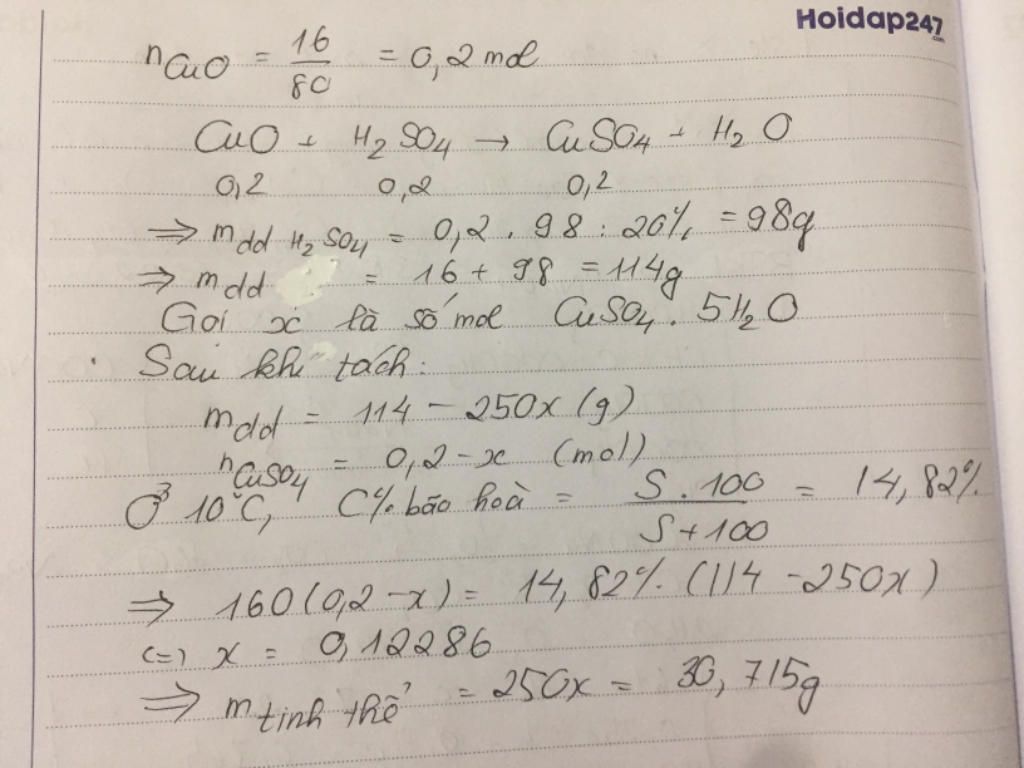 Hoidap247
.com
nCuO = 16/80 = 0,2 mol
CuO + H2SO4 → CuSO4 + H2O
0,2 0,2 0,2
=> mdd H2SO4 = 0,2 . 98 : 20% = 98g
=> mdd = 16 + 98 = 114g
Gọi x là số mol CuSO4 . 5H2O
Sau khi tách:
mdd = 114 - 250x (g)
nCuSO4 = 0,2 - x (mol)
Ở 10°C, C% bão hoà = S . 100 / S + 100 = 14,82%
=> 160(0,2 - x) = 14,82% (114 - 250x)
<=> x = 0,12286
=> m tinh thể = 250x = 30,715g